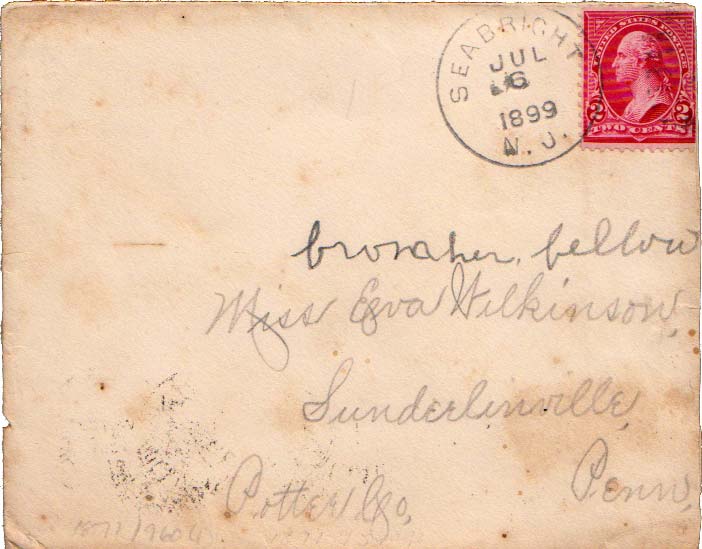 SEABRIGHT
JUL
6
1899
N. J.
UNITED STATES POSTAGE
2 2
TWO CENTS
fellow
Miss Eva Wilkinson,
Sunderlinville,
Potter Co,
Penn,